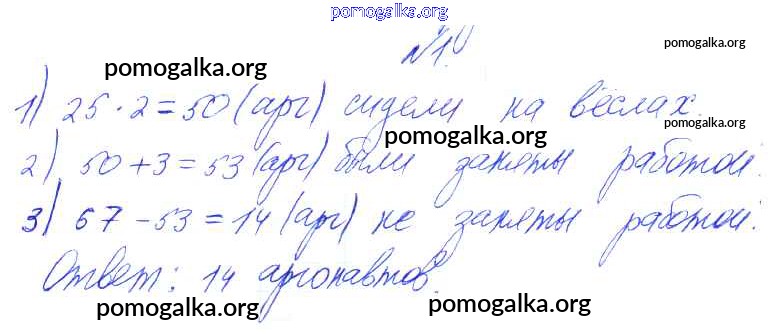 pomogalka.org
№1.
pomogalka.org
pomogalka.org
1) 25 · 2 = 50 (арг) сидели на вёслах.
pomogalka.org
pomogalka.org
2) 50 + 3 = 53 (арг) были заняты работой.
3) 67 - 53 = 14 (арг) не заняты работой.
Ответ: 14 аргонавтов.
pomogalka.org
pomogalka.org